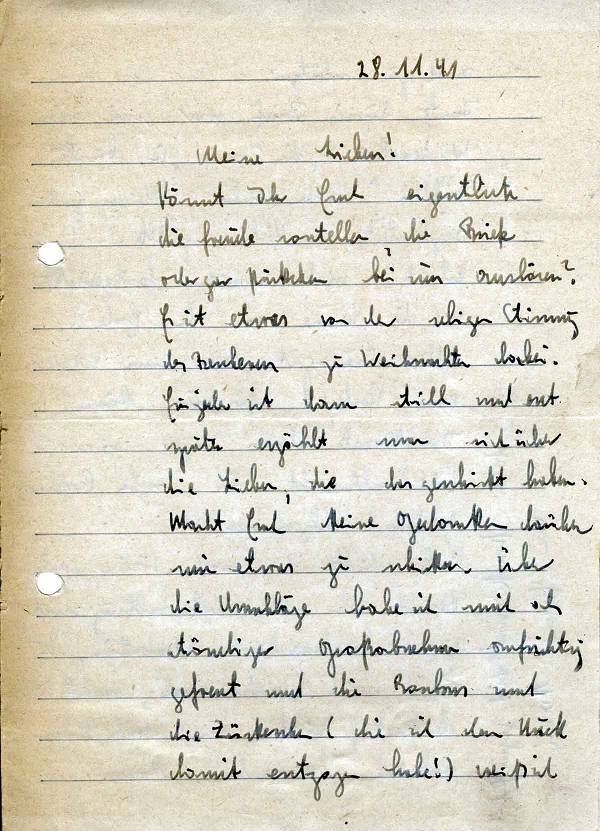 28.11.41
Meine Lieben!
Könnt Ihr Euch eigentlich
die Freude vorstellen die Briefe
oder gar Päckchen bei uns auslösen?
Es ist etwas von der seligen Stimmung
des zu Weihnachten dabei.
Ein jeder ist dann still und erst
später erzählt man sich über
die Lieben, die das geschickt haben.
Macht Euch keine Gedanken darüber
mir etwas zu schicken. Über
die Umschläge habe ich mich als
ständiger Großabnehmer aufrichtig
gefreut und die Bonbons und
die (die ich dem Mück
damit entzogen habe!) weiß ich